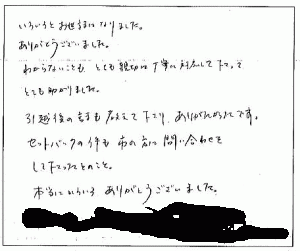 いろいろとお世話になりました。
ありがとうございました。
わからないことも、とても親切に丁寧に対応して下さって
とても助かりました。
引越後の事も考えて下さり、ありがたかったです。
セットバックの件も市の方に問い合わせを
して下さったとのこと。
本当にいろいろ ありがとうございました。